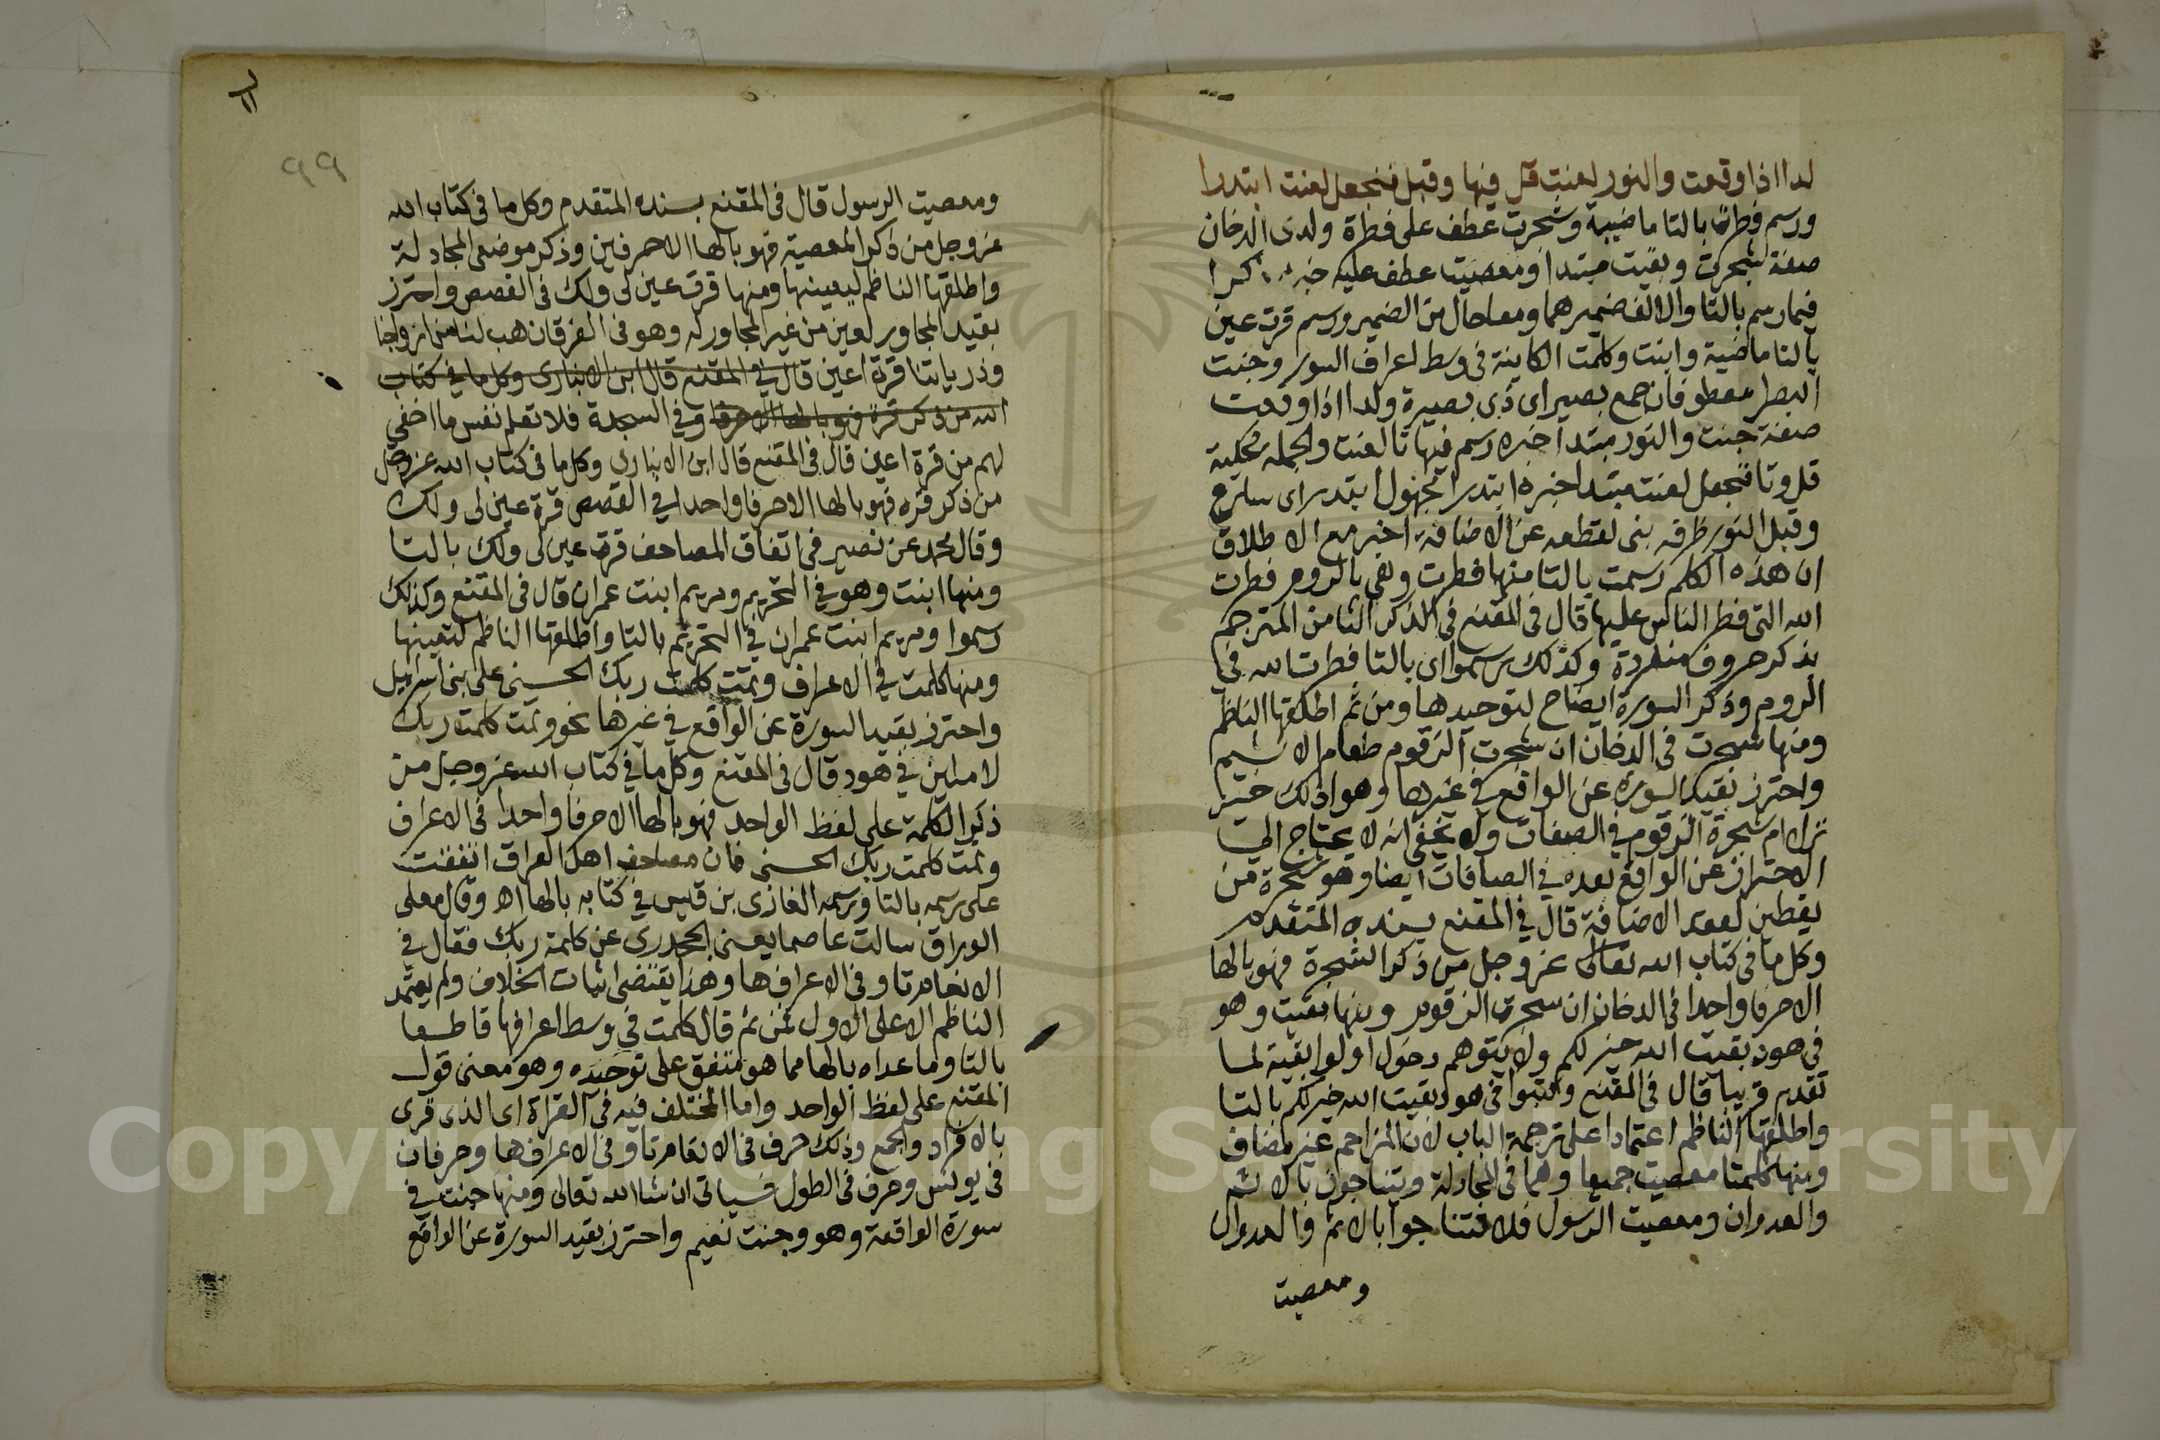 لدا اذا وقعت والنور لعنت قل فيها وقبل فنجعل لعنت ابتدرا
ورسم فطرت بالتا ماضيية وشجرت عطف على فطرة ولدى الدخان
صفة شجرت وبقيت مبتدا ومعصيت عطف عليه خبره ذكرا
فيما رسم بالتا والالف ضميرهما ومعا حال من الضمير ورسم قرت عين
بالتا ماضية وابنت وكلمت الكاينة في وسط اعراف السور وجنت
البصرا معطوفان جمع بصير اى ذى بصيرة ولدا اذا وقعت
صفة جنت والنور مبتدا خبره رسم فيها تا لعنت والجملة محكية
قل وتا فنجعل لعنت مبتدا خبره ابتدرا مجهول ابتدر اى سارع
وقبل النور ظرفه بنى لقطعه عن الاضافة اخبر مع الاطلاق
ان هذه الكلم رسمت بالتا منها فطرت وهى بالروم فطرت
الله التى فطر الناس عليها قال فى المقنع فى الذكر الثامن المترجم
بذكر حروف منفردة وكذلك رسموا اى بالتا فطرت الله فى
الروم وذكر السورة ايضاح لتوحيدها ومن ثم اطلقها الناظم
ومنها شجرت فى الدخان ان شجرت الزقوم طعام الاثيم
واحترز بقيد السورة عن الواقع فى غيرها وهو اذلك خير
نزلا ام شجرة الزقوم فى الصفات ولا يخفى انه لا يحتاج الى
الاحتراز عن الواقع بعده فى الصافات ايضا وهو شجرة من
يقطين لفقد الاضافة قال فى المقنع بسنده المتقدم
وكل ما فى كتاب الله تعالى عز وجل من ذكر الشجرة فهو بالها
الا حرفا واحدا فى الدخان ان شجرت الزقوم ومنها بقيت وهو
فى هود بقيت الله خير لكم ولا يتوهم دخول اولوا بقية لما
تقدم قريبا قال فى المقنع وكتبوا فى هود بقيت الله خير لكم بالتا
واطلقها الناظم اعتمادا على ترجمة الباب لان المزاحم غير مضاف
ومنها كلمتا معصيت جميعا وهما فى المجادلة ويتناجون بالاثم
والعدوان ومعصيت الرسول فلا تتناجوا بالاثم والعدوان
ومعصيت
٩٩
ومعصيت الرسول قال فى المقنع بسنده المتقدم وكل ما فى كتاب الله
عز وجل من ذكر المعصية فهو بالها الا حرفين وذكر موضعى المجادلة
واطلقها الناظم ليعينها ومنها قرت عين لى ولك فى القصص واحترز
بقيد المجاور لعين من غير المجاور له وهو فى الفرقان هب لنا من ازواجنا
وذرياتنا قرة اعين قال فى المقنع قال ابن الانبارى وكل ما فى كتاب
الله من ذكر قرة فهو بالها الا حرفا وفى السجدة فلا تعلم نفس ما اخفى
لهم من قرة اعين قال فى المقنع قال ابن الانبارى وكل ما فى كتاب الله عز وجل
من ذكر قره فهو بالها الا حرفا واحدا فى القصص قرة عين لى ولك
وقال محمد عن نصير فى اتفاق المصاحف قرت عين لى ولك بالتا
ومنها ابنت وهو فى التحريم ومريم ابنت عمران قال فى المقنع وكذلك
رسموا ومريم ابنت عمران فى التحريم بالتا واطلقها الناظم لتعينها
ومنها كلمت فى الاعراف وتمت كلمت ربك الحسنى على بنى اسرائيل
واحترز بقيد السورة عن الواقع فى غيرها نحو وتمت كلمت ربك
لاملين فى هود قال فى المقنع وكل ما فى كتاب الله عز وجل من
ذكر الكلمة على لفظ الواحد فهو بالها الا حرفا واحدا فى الاعراف
وتمت كلمت ربك الحسنى فان مصاحف اهل العراق اتفقت
على رسمه بالتا ورسمه الغازى بن قيس فى كتابه بالها اه وقال معلى
الوراق سالت عاصما يعنى الجحدرى عن كلمة ربك فقال فى
الانعام تا وفى الاعراف ها وهذا يقتضى اثبات الخلاف ولم يعتمد
الناظم الا على الاول فمن ثم قال كلمت فى وسط اعرافها قاطعا
بالتا وما عداه بالها مما هو متفق على توحيده وهو معنى قول
المقنع على لفظ الواحد واما المختلف فيه فى القراة اى الذى قرى
بالافراد والجمع وذلك حرف فى الانعام تا وفى الاعراف ها وحرفان
فى يونس وحرف فى الطول فسياتى ان شا الله تعالى ومنها جنت فى
سورة الواقعة وهو وجنت نعيم واحترز بقيد السورة عن الواقع
Copyright © King Saud University